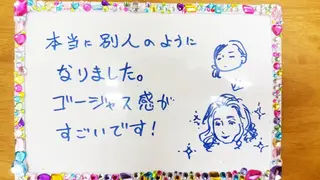 本当に別人のように
なりました。
ゴージャス感が
すごいです!